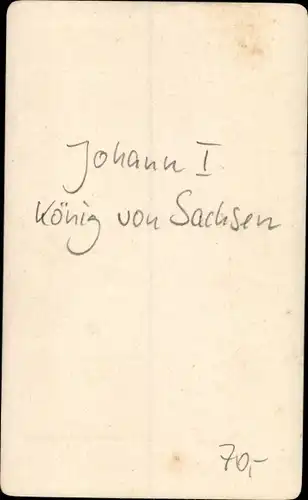 Johann I
König von Sachsen
70,-